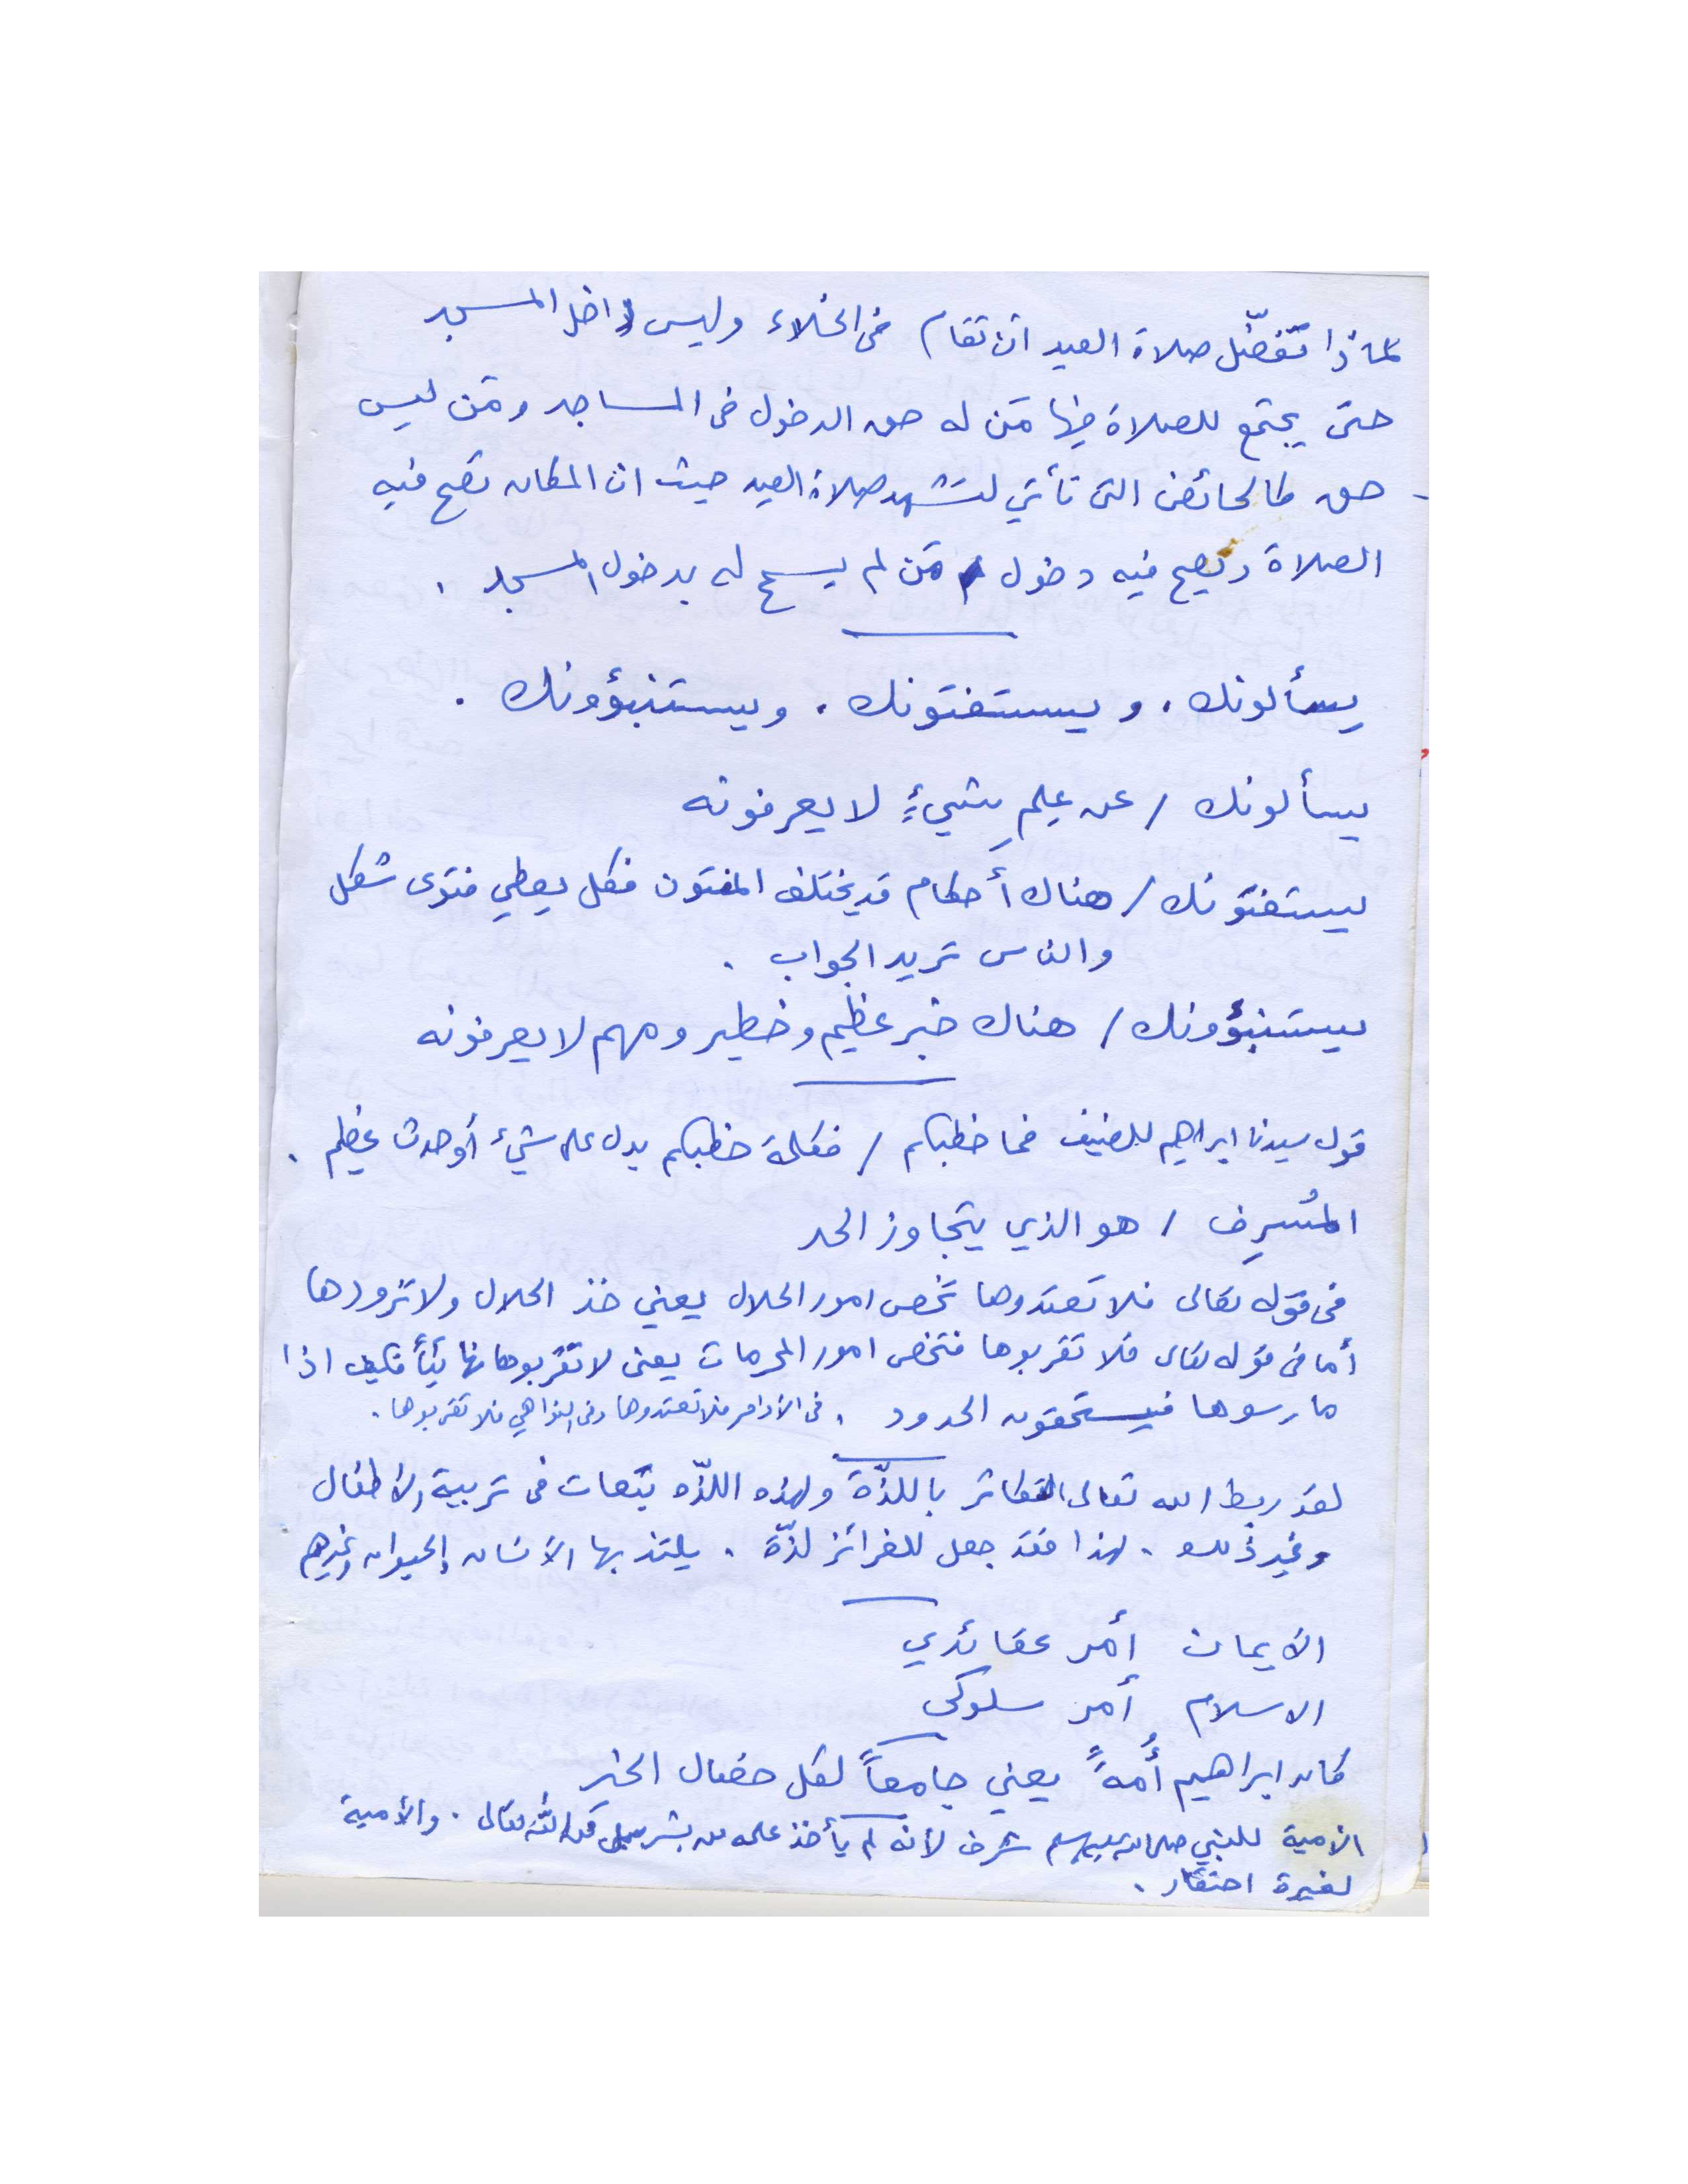 لماذا تُفضّل صلاة العيد ان تقام في الخلاء وليس داخل المسجد
حتى يجتمع للصلاة فيها مَن له حق الدخول في المساجد ومَن ليس
حق كالحائض التي تأتي لتشهد صلاة العيد حيث ان المكان تصح فيه
الصلاة ويصح فيه دخول مَن لم يسمح له بدخول المسجد .
يسألونك . ويستفتونك . ويستنبؤونك .
يسألونك / عن عِلمِ شيءٍ لا يعرفونه
يستفتونك / هناك أحكام قد يختلف المفتون فكل يعطي فتوى شكل
والناس تريد الجواب .
يستنبؤونك / هناك خبر عظيم وخطير ومهم لا يعرفونه
قول سيدنا ابراهيم للضيف فما خطبكم / فكلمة خطبكم يدل على شيء أو حدث عظيم .
المُسرِف / هو الذي يتجاوز الحد
في قوله تعالى فلا تعتدوها تخص امور الحلال يعني خذ الحلال ولا تزودها
أما في قوله تعالى فلا تقربوها فتخص امور المحرمات يعني لا تقربوها فكيف اذا
مارسوها فيستحقون الحدود . في الأوامر فلا تعتدوها وفي النواهي فلا تقربوها .
لقد ربط الله تعالى التكاثر باللذّة ولهذه اللذّه تبعات في تربية الأطفال
وغير ذلك . لهذا فقد جعل للغرائز لذّة . يلتذ بها الأنسان والحيوان وغيرهم
الأيمان أمر عقائدي
الاسلام أمر سلوكي
كان ابراهيم أُمةً يعني جامعاً لكل خصال الخير
الأمية للنبي صلى الله عليه وسلم شرف لأنه لم يأخذ علمه من بشر بل من الله تعالى . والأمية
لغيرة احتقار .